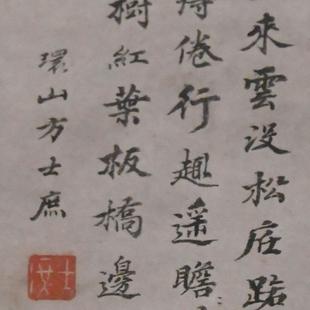 來雲没松庄路
倦行趣遥瞻
樹紅葉板橋邊
環山方士庶
士庶